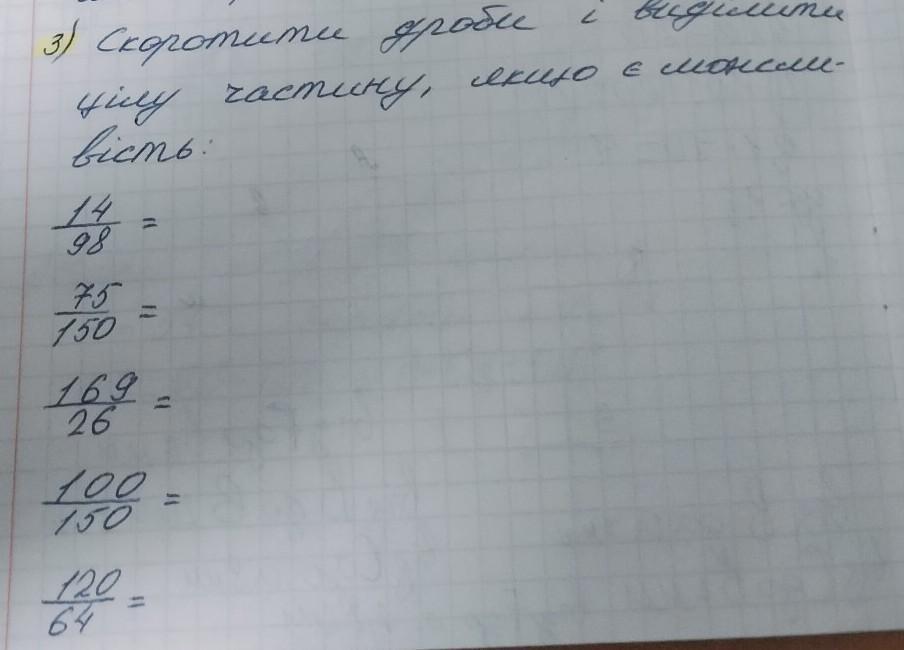 3) Скоротити дроби і виділити
цілу частину, якщо є можли-
вість:
14/98 =
75/150 =
169/26 =
100/150 =
120/64 =